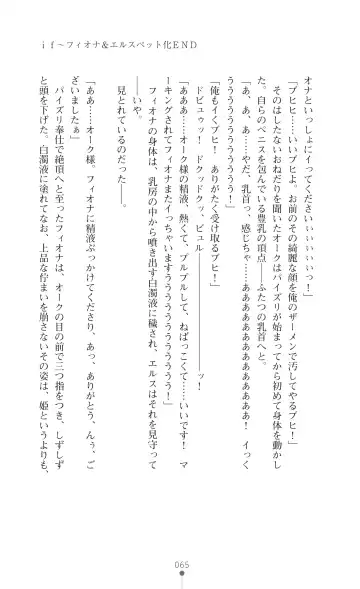 if～フィオナ＆エルスペット化END
オナといっしょにイってくださいぃいぃいぃっ！」
「ブヒヒ……いいブヒよ。お前のその綺麗な顔を俺のザーメンで汚してやるブヒ！」
そのはしたないおねだりを聞いたオークはパイズリが始まってから初めて身体を動かし
た。自らのペニスを包んでいる豊乳の頂点――ふたつの乳首へと。
「あ、あ、あ……やだ、乳首っ、感じちゃ……ああああああああああああ！　イっく
うううううううううううう！」
「俺もイくブヒ！　ありがたく受け取るブヒ！」
ドビュゥッ！　ドクッドクッ、ビュル――――――――――ッ！
「ああ……オーク様の精液、熱くて、プルプルして、ねばっこくて……いいです！　マ
ーキングされてフィオナまたイっちゃいますううううううううううう！」
フィオナの身体は、乳房の中から噴き出す白濁液に穢され、エルスはそれを見守って
――いや。
見とれているのだった――。
「ああ……オーク様。フィオナに精液ぶっかけてくださり、あっ、ありがとう、んぅ、ご
ざいましたぁ」
パイズリ奉仕で絶頂へと至ったフィオナは、オークの目の前で三つ指をつき、しずしず
と頭を下げた。白濁液に塗れてなお、上品な佇まいを崩さないその姿は、姫というよりも、
065